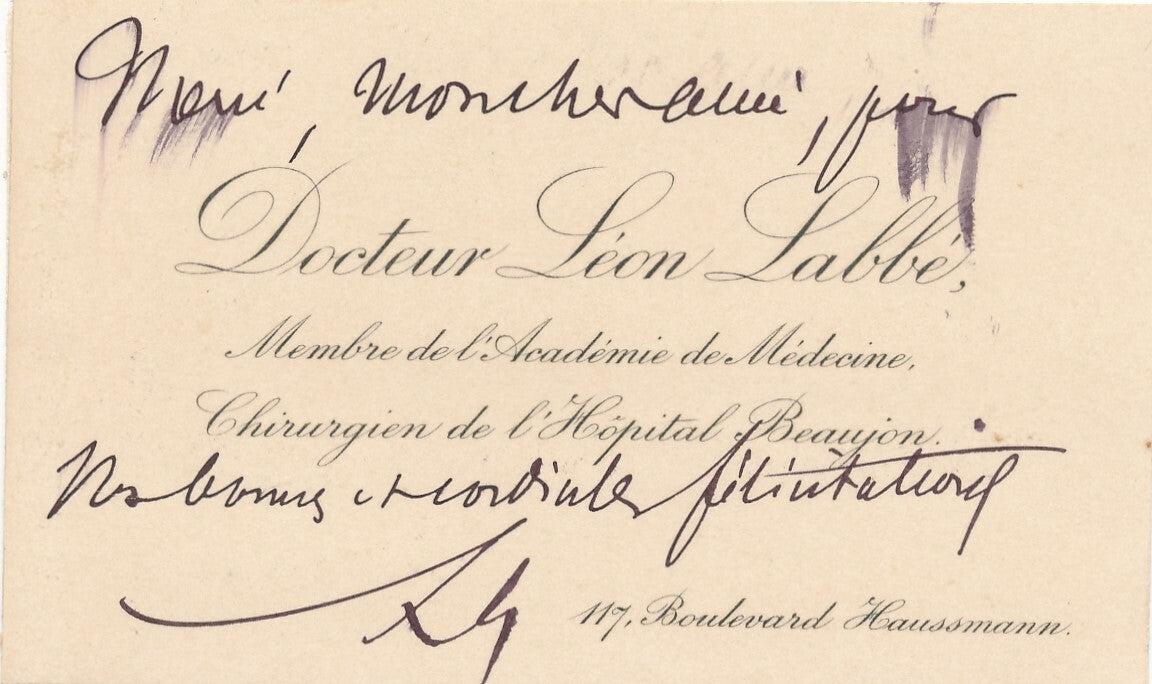 Merci, mon cher ami, pour
Docteur Léon Labbé,
Membre de l'Académie de Médecine,
Chirurgien de l'Hôpital Beaujon.
Vos bonnes et cordiales félicitations
117, Boulevard Haussmann.